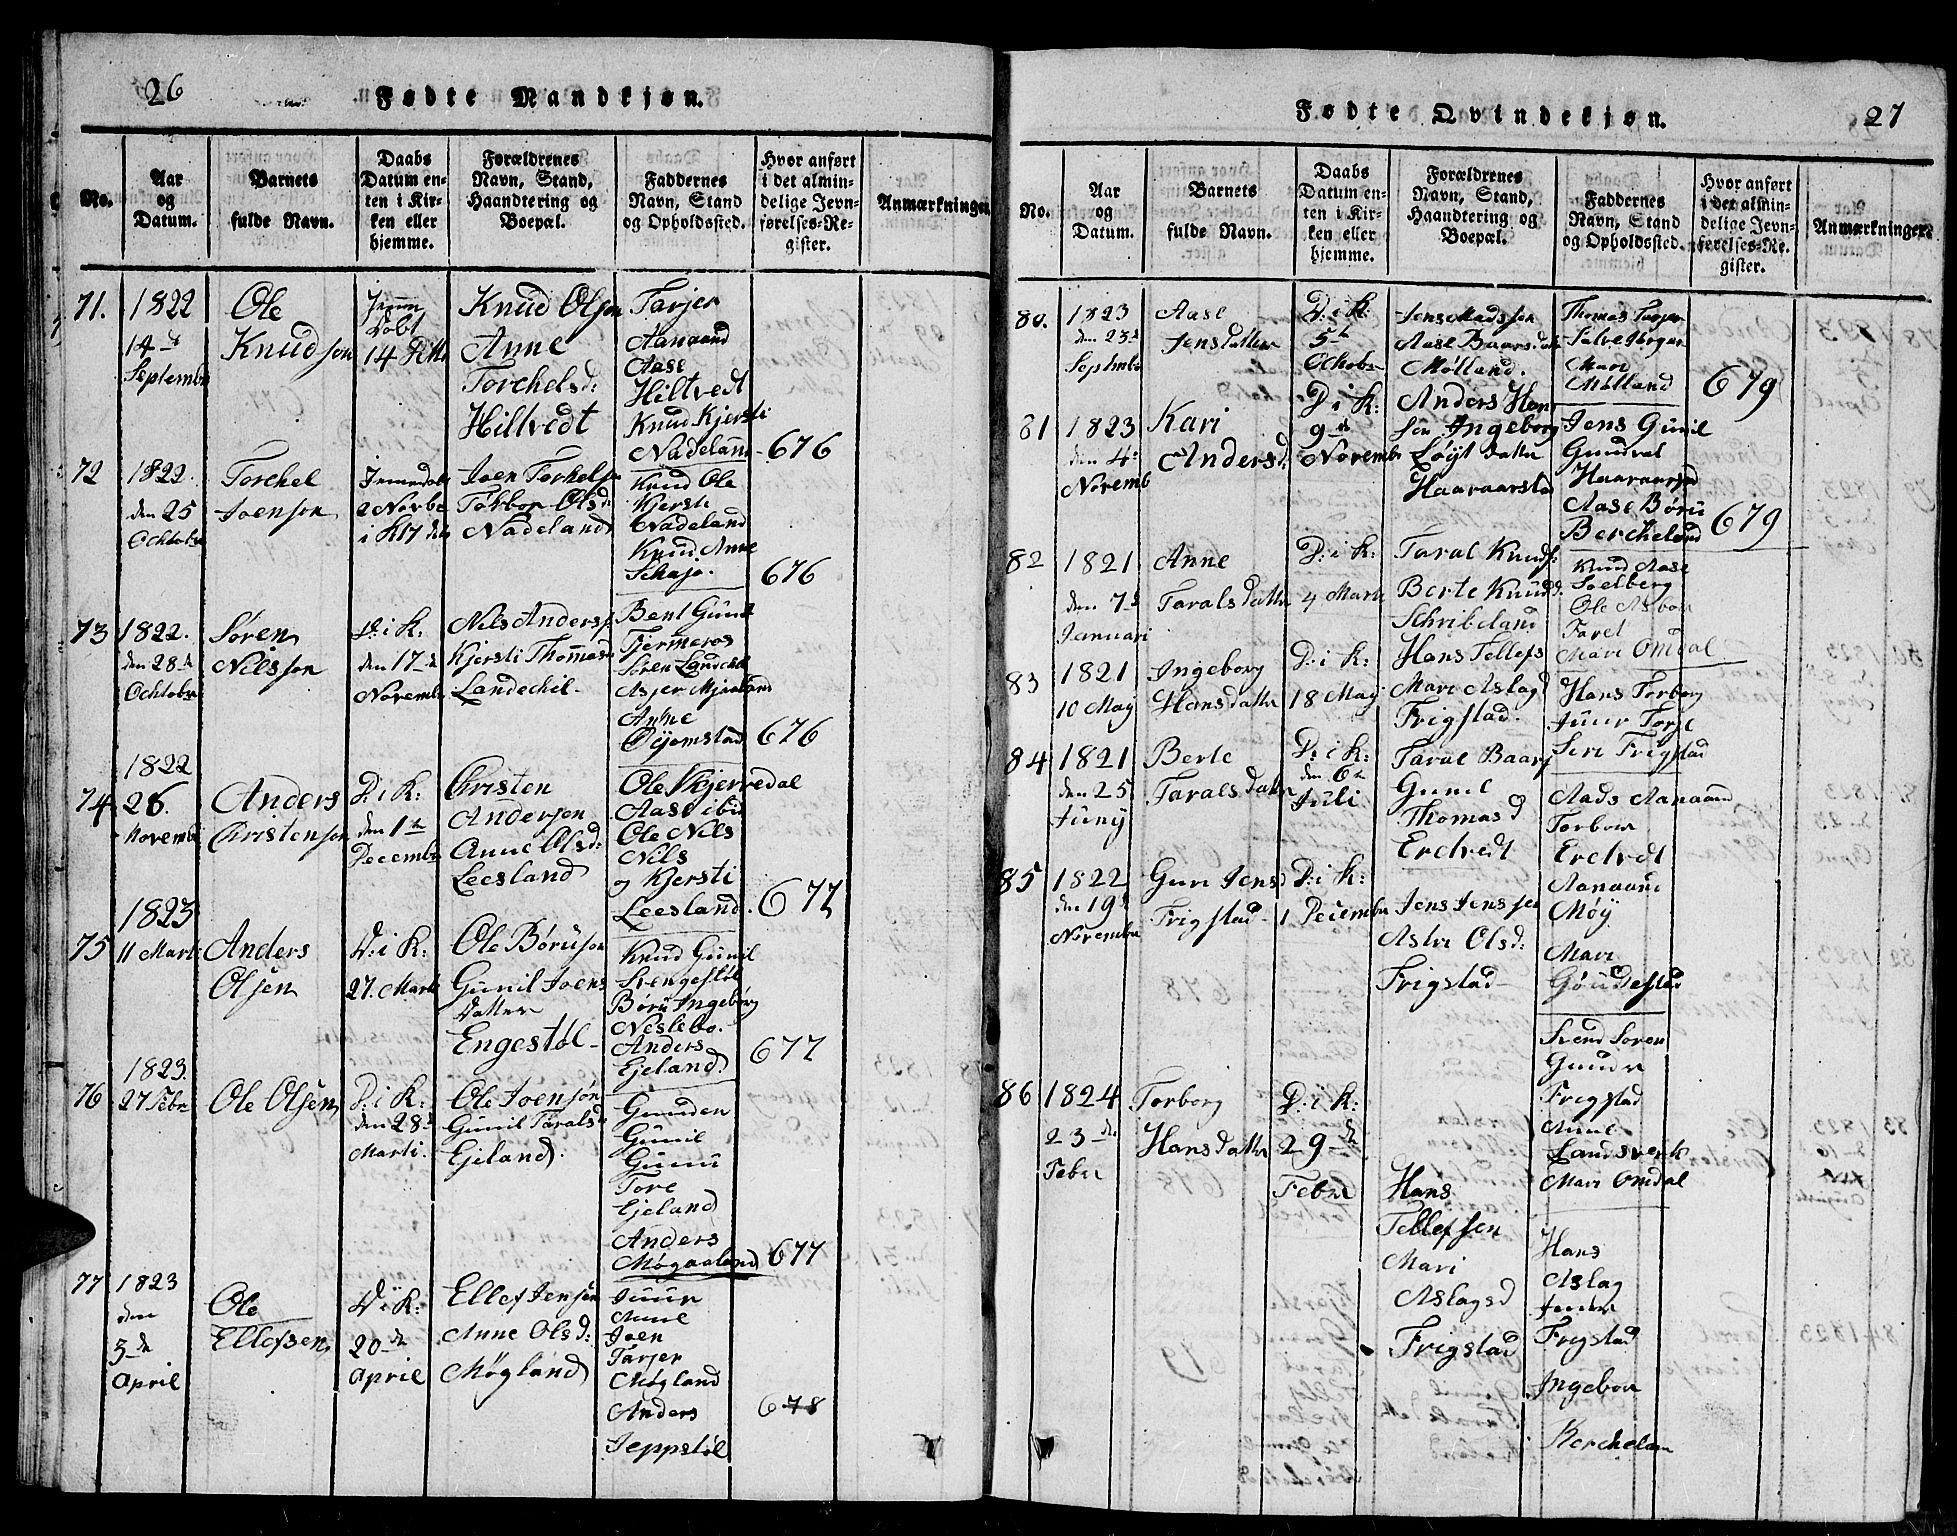 26
Fødte Mandkjøn.
No.
Aar
og
Datum.
Barnets
fulde Navn.
Daabs
Datum en-
ten i Kir-
ken eller
hjemme.
Forældrenes
Navn, Stand,
Haandtering og
Boepæl.
Faddernes
Navn, Stand
og Opholdssted.
Hvor anført
i det almin-
delige Jevn-
førelses-Re-
gister.
Anmærkninger
71.
1822
14 d
Septembr
Ole
Knudson
Døbt
14
Knud Olsen
Anne
Torchelsd:
Hiltvedt
Tarjer
Aanaand
Aase
Hiltvedt
Knud Kjersti
Nadeland
676
72
1822.
den 25
Ochtobr
Torchel
Joenson
2 Novbr
i K 17 den
Joen Torkels
Olsd
Nadeland
Knud Ole
Kjersti
Nadeland
Knud Anne
676
73
1822.
den 28 d
Ochtobr
Søren
Nilsson
D: i K:
den 17 d
Novembr
Nils Anders
Kjersti Thomasd
Landechil
Bent Gunil
Søren Landchil
Asjer
Anne
676
74
1822
26.
Novembr
Anders
Christenson
D: i K:
den 1 te
Decembr
Christen
Andersen
Anne Olsd:
Leesland
Ole Skjerredal
Aase ibid
Ole Nils
Nils
og Kjersti
Leesland.
677
75
1823
11 Marti
Anders
Olsen
D: i K:
27. Marti
Ole Børuson
Gunil Joens
Datter
Engestøl
Knud Gunil
Børu Ingebørg
Neslebo.
Anders
Ejeland
677
76
1823.
27 Febr
Ole Olsen
D: i K:
den 28 d
Marti.
Ole Joensøn
Gunil Taralsd
Ejeland.
Gunden
Gunil
Tore
Ejeland
Anders
Møgaaland
677
77
1823
den
3 de
April
Ole
Ellefsen
D: i K:
20 de
April
Ellef Jensen
Anne Olsd:
Møgland
Juur
Joen
Tarjer
Møgland
Anders
Jeppstøl
678
27
Fødte Qvindekjøn.
No.
Aar
og
Datum.
Barnets
fulde Navn.
Daabs
Datum en-
ten i Kir-
ken eller
hjemme.
Forældrenes
Navn, Stand,
Haandtering og
Boepæl.
Faddernes
Navn, Stand
og Opholdssted.
Hvor anført
i det almin-
delige Jevn-
førelses-Re-
gister.
Anmærkninger.
80.
1823
den 23 d
Septmbr
Aase
Jensdatter
D: i K:
5 te
Ochtobr
Jens Madssen
Aase Baarsdatr
Mølland.
Thomas
Mari
Mølland
679
81
1823
den 4 d
Novemb
Kari
Andersd:
D i K:
9 de
Novembr
Anders Han
sen Ingeborg
Løyt datter
Haaraarstad
Jens Gunil
Gundval
Haaraarstad
Aase Børu
Bercheland
679
82
1821
den 7 d
Januari
Anne
Taralsdattr
D: i K:
4 Marti
Taral Knuds:
Berte Knudsd.
Schribeland
Knud Aase
Solberg
Ole Asbor
Taral
Mari Omdal
83
1821
10 May
Ingeborg
Hansdattr
D: i K:
18 May
Hans Tellefs
Mari Aslagd
Frigstad.
Hans Torborg
Juur Torge
Siri Frigstad
84
1821
den 25
Juny
Berte
Taralsdattr
D: i K:
den 6 te
Juli
Taral Baars
Gunil
Thomasd
Eretvedt
Mads Aanaand
Torbor
Eretvedt
Aanaand
Møy
Mari
85
1822
den 19 d
Novembr
Guri Jensd
Frigstad
D: i K:
1 Decembr
Jens Jensen
Olsd:
Frigstad
Svend Soren
Frigstad
Landsverk
Mari Omdal
86
1824
23 de
Febr
Torborg
Hansdattr
D: i K:
29 de
Febr
Hans
Tellefsen
Mari
Aslagsd
Frigstad
Hans
Aslag
Frigstad
Ingebor
Bercheland